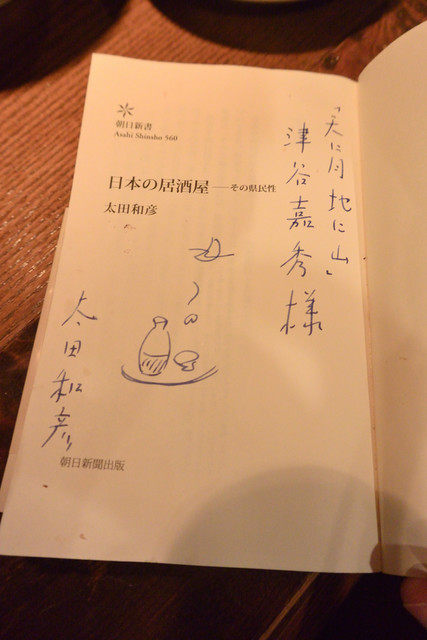 「天に月 地に山」
津谷嘉秀様
朝日新書
Asahi Shinsho 560
日本の居酒屋――その県民性
太田和彦
太田和彦
朝日新聞出版